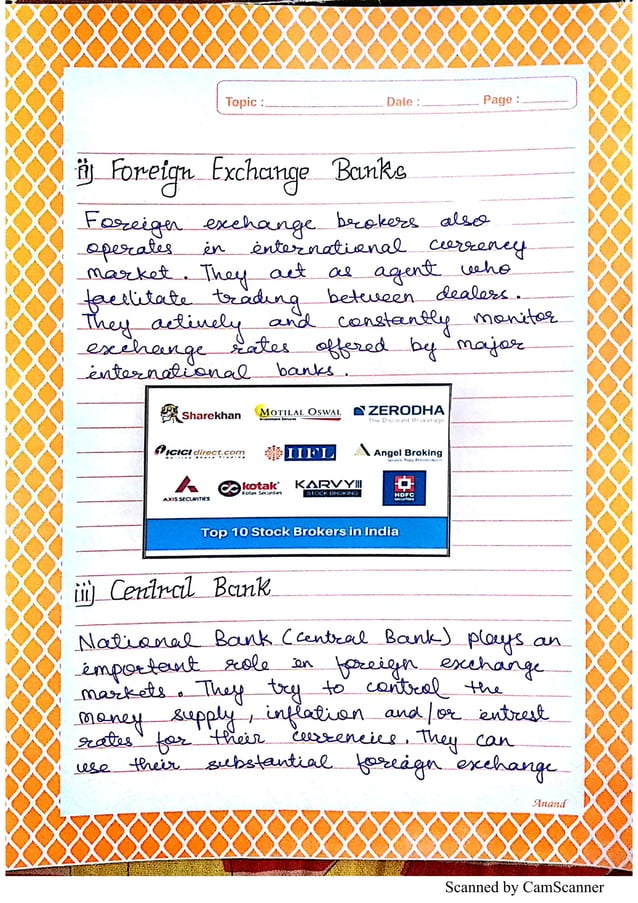 Topic : Date : Page :
ii) Foreign Exchange Banks
Foreign exchange brokers also
operates in international currency
market. They act as agent who
facilitate trading between dealers.
They actively and constantly monitor
exchange rates offered by major
international banks.
Sharekhan MOTILAL OSWAL ZERODHA
ICICI direct.com IIFL Angel Broking
AXIS SECURITIES kotak Kotak Securities KARVY STOCK BROKING HDFC SECURITIES
Top 10 Stock Brokers in India
iii) Central Bank
National Bank (Central Bank) plays an
important role in foreign exchange
markets. They try to control the
money supply, inflation and/or entrest
rates for their currencies. They can
use their substantial foreign exchange
Anand
Scanned by CamScanner